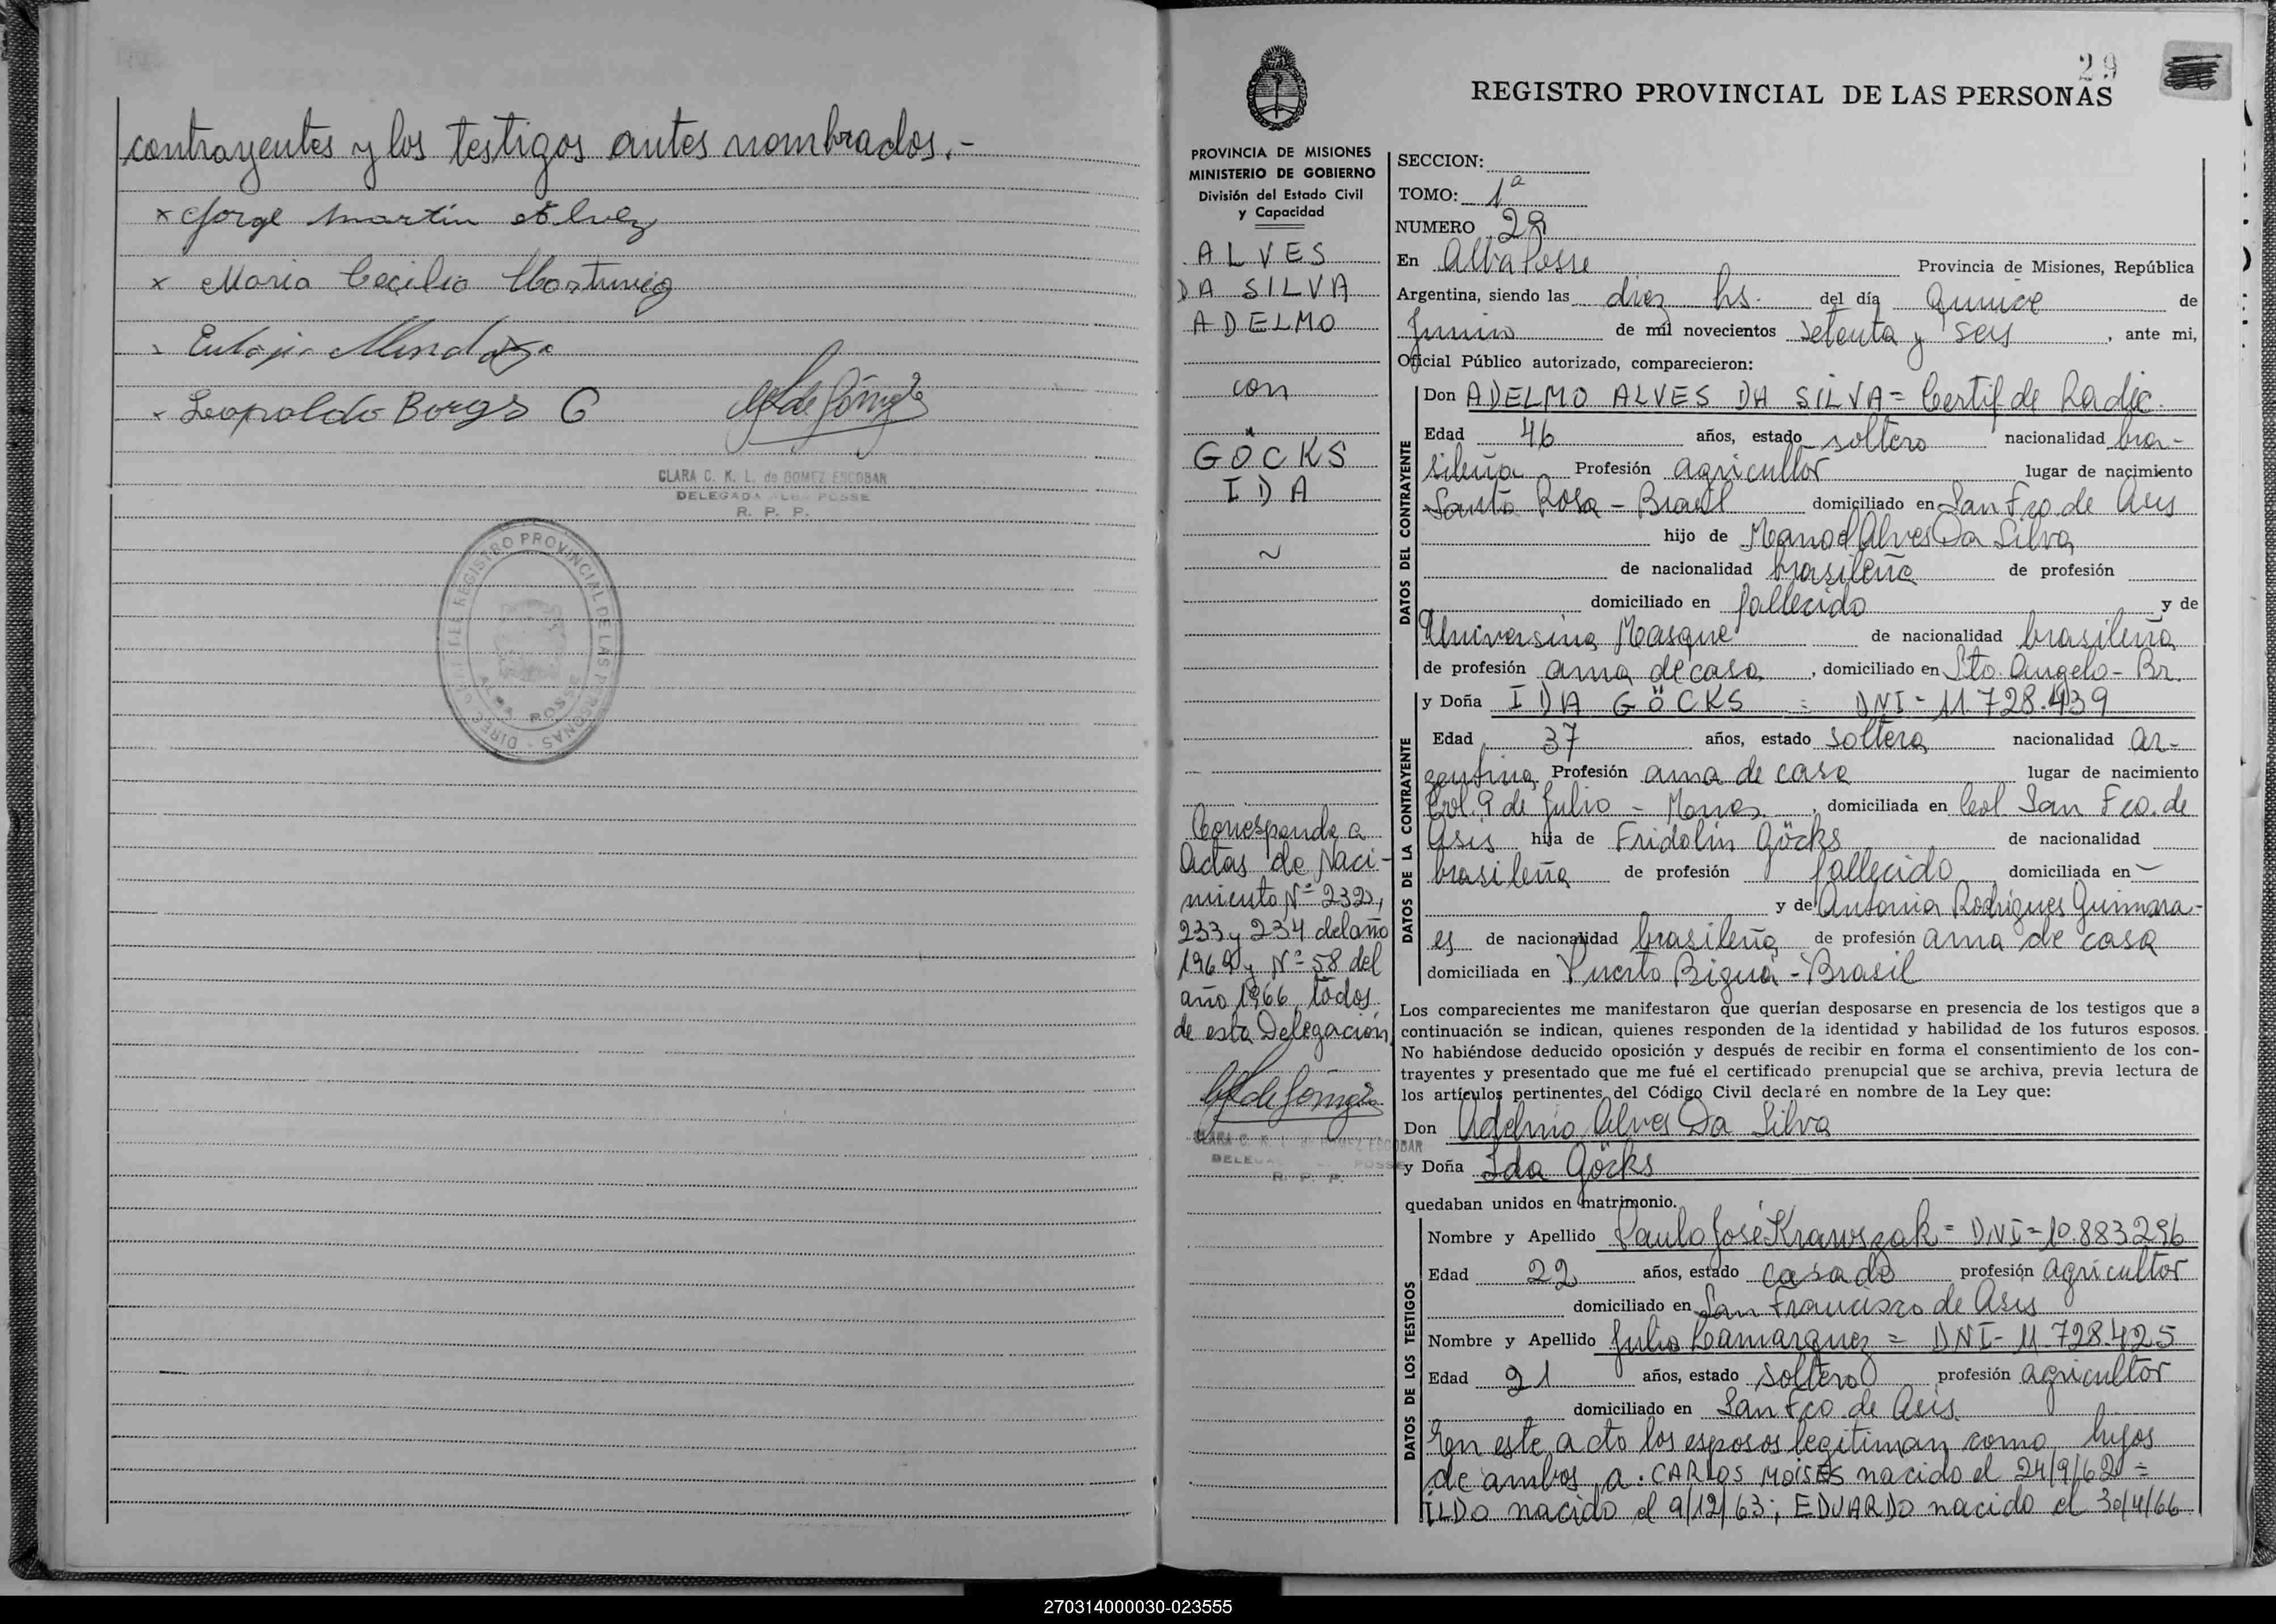 contrayentes y los testigos antes nombrados.-
x Jorge Martin Alvez
x Maria Cecilia Hartwig
x Eulogia
x Leopoldo Borges G
CLARA C. K. L. de GOMEZ ESCOBAR
DELEGADA ALBA POSSE
R. P. P.
REGISTRO PROVINCIAL DE LAS PERSONAS
ALBA POSSE
29
REGISTRO PROVINCIAL DE LAS PERSONAS
PROVINCIA DE MISIONES
MINISTERIO DE GOBIERNO
División del Estado Civil
y Capacidad
ALVES
DA SILVA
ADELMO
con
GÖCKS
IDA
~
Corresponde a
Actas de Naci-
miento Nº 232,
233 y 234 del año
1969 y Nº 58 del
año 1966, todos
de esta Delegación
CLARA C. K. L. de GOMEZ ESCOBAR
DELEGADA ALBA POSSE
R. P. P.
SECCION:
TOMO: 1ª
NUMERO 29
En Alba Posse Provincia de Misiones, República
Argentina, siendo las diez hs. del día quince de
Junio de mil novecientos setenta y seis, ante mi,
Oficial Público autorizado, comparecieron:
DATOS DEL CONTRAYENTE
Don ADELMO ALVES DA SILVA = Certif de Radic.
Edad 46 años, estado soltero nacionalidad bra-
sileña Profesión agricultor lugar de nacimiento
Santa Rosa - Brasil domiciliado en San Fco. de Asis
hijo de Manoel Alves Da Silva
de nacionalidad brasileña de profesión
domiciliado en fallecido y de
Universina Masque de nacionalidad brasileña
de profesión ama de casa, domiciliado en Sto. Angelo - Br.
DATOS DE LA CONTRAYENTE
y Doña IDA GÖCKS = DNI - 11.728.439
Edad 37 años, estado soltera nacionalidad ar-
gentina Profesión ama de casa lugar de nacimiento
Col. 9 de Julio - Mnes, domiciliada en Col. San Fco. de
Asis hija de Fridolin Göcks de nacionalidad
brasileña de profesión fallecido domiciliada en ~
y de Antonia Rodrigues Guimara-
es de nacionalidad brasileña de profesión ama de casa
domiciliada en Puerto Biguá - Brasil
Los comparecientes me manifestaron que querían desposarse en presencia de los testigos que a
continuación se indican, quienes responden de la identidad y habilidad de los futuros esposos.
No habiéndose deducido oposición y después de recibir en forma el consentimiento de los con-
trayentes y presentado que me fué el certificado prenupcial que se archiva, previa lectura de
los artículos pertinentes del Código Civil declaré en nombre de la Ley que:
Don Adelmo Alves Da Silva
y Doña Ida Göcks
quedaban unidos en matrimonio.
DATOS DE LOS TESTIGOS
Nombre y Apellido Paulo José Krawszak = DNI = 10.883296
Edad 22 años, estado casado profesión agricultor
domiciliado en San Francisco de Asis
Nombre y Apellido Julio Camarguez = DNI - 11.728.425
Edad 21 años, estado soltero profesión agricultor
domiciliado en San Fco de Asis
En este acto los esposos legitiman como hijos
de ambos a: CARLOS MOISES nacido el 24/9/62 =
ILDO nacido el 9/12/63; EDUARDO nacido el 30/4/66
270314000030-023555